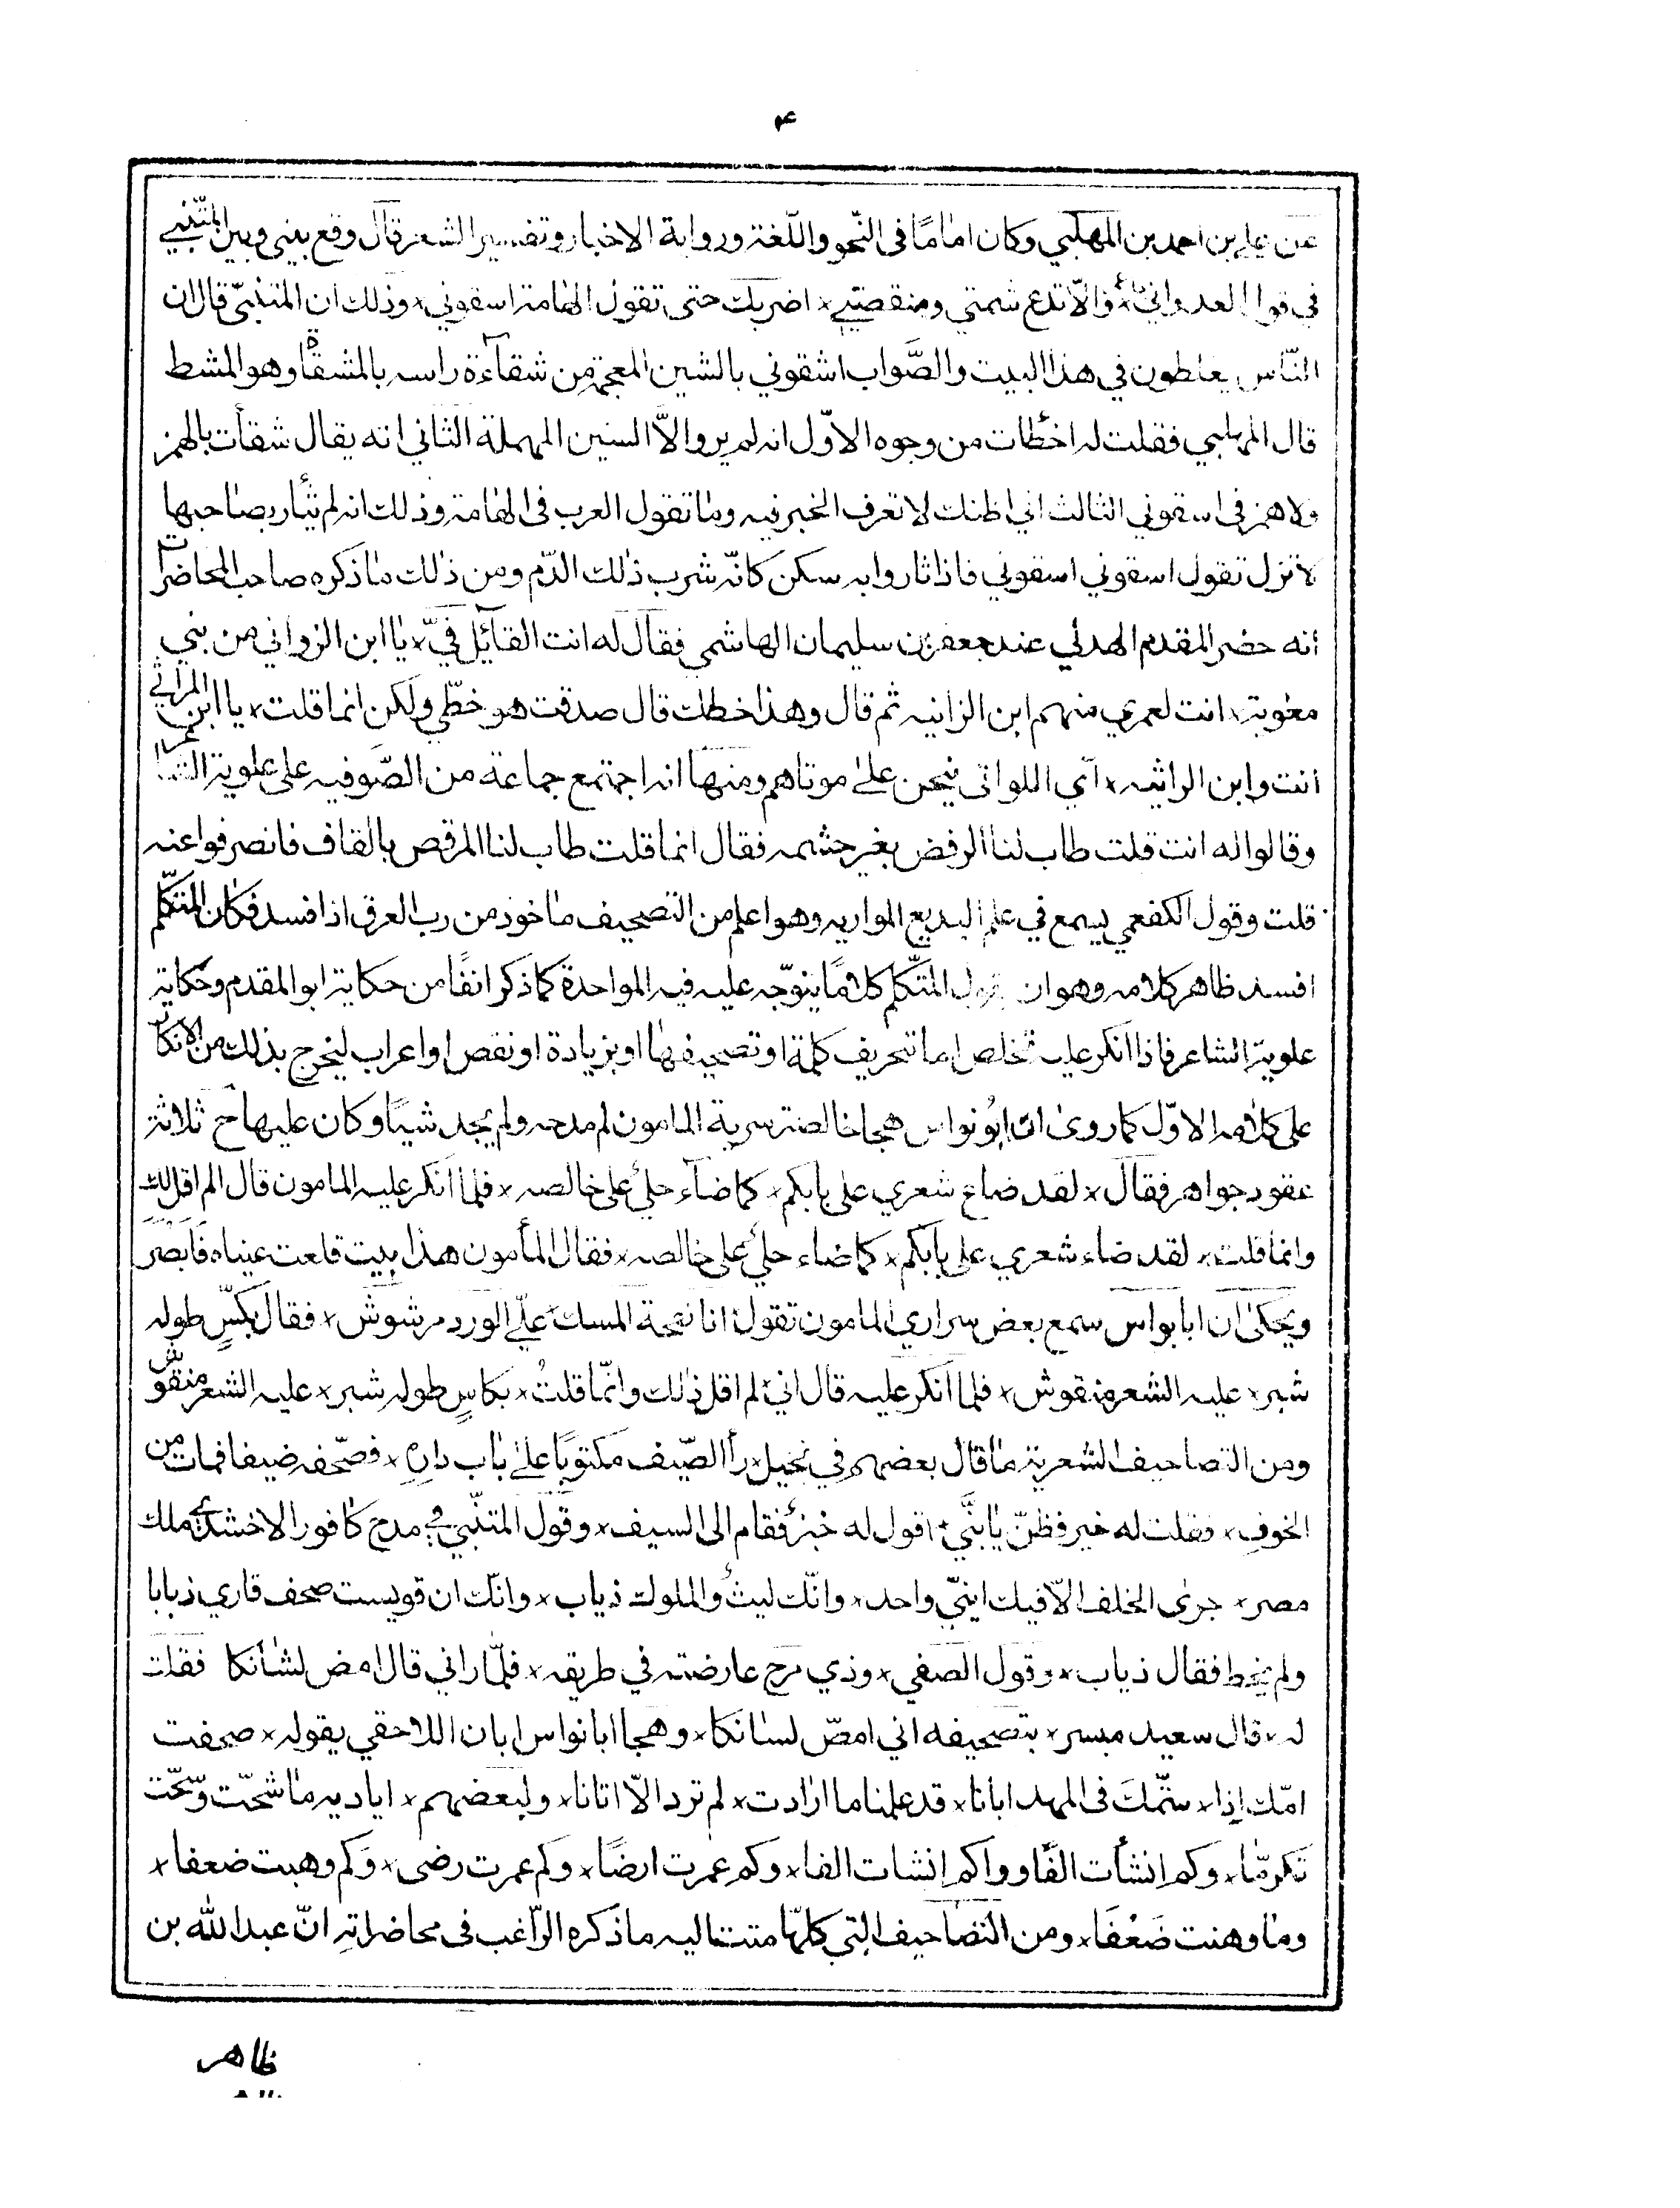 ۴
عن علي بن احمد بن المهلبي وكان امامًا في النّحو واللّغة ورواية الاخبار وتفسير الشعر قال وقع بيني وبين المتنبّي
في قول العدواني * والّا تدع شتمي ومنقصتي * اضربك حتى تقول الهامة اسقوني * وذلك ان المتنبّي قال ان
النّاس يغلطون في هذا البيت والصَّواب اشقوني بالشين المعجمة من شقآءة راسه بالمشقاة وهو المشط
قال المهلبي فقلت له اخطات من وجوه الاوّل انه لم يروالاّ السين المهملة الثاني انه يقال شقأت بالهمز
ولا همز في اسقوني الثالث اني اظنك لا تعرف الخبر فيه وما تقول العرب في الهامة وذلك انه لم يثأر بصاحبها
لا تزل تقول اسقوني اسقوني فاذا ثاروا به سكن كانّه شرب ذلك الدّم ومن ذلك ما ذكره صاحب المحاضرات
أنه حضر المقدم الهدلي عند جعفر بن سليمان الهاشمي فقال له انت القآئل فيّ * يا ابن الزواني من بني
معوية * انت لعمري منهم ابن الزانيه ثم قال وهذا خطك قال صدقت هو خطّي ولكن انما قلت * يا ابن المراثي
انت وابن الراثيه * اي اللواتي نيحن على موتاهم ومنها انه اجتمع جماعة من الصّوفيه على علوية الشاعر
وقالوا له انت قلت طاب لنا الرفض بغير حشمه فقال انما قلت طاب لنا المرقص بالقاف فانصرفوا عنه
قلت وقول الكفعمي يسمع في علم البديع المواريه وهو اعلم من التصحيف ماخوذ من رب العرق اذا فسد فكان المتكلّم
افسد ظاهر كلامه وهو ان يقول المتكّلم كلامًا يتوّجه عليه فيه المواحدة كما ذكر انفًا من حكاية ابو المقدم وحكاية
علوية الشاعر فاذا انكر عليه تخلص اما تحريف كلمة او تصحيفها او بزيادة او نقص او اعراب ليخرج بذلك من الانكار
على كلامه الاوّل كما روى ان ابو نواس هجا خالصة سرية المامون لم مدحه ولم يجد شيئا وكان عليها ح ثلاثة
عقود جواهر فقال * لقد ضاع شعري على بابكم * كما ضآء حلي على خالصه * فلما انكر عليه المامون قال الم اقل لك
وانما قلت * لقد ضاء شعري على بابكم * كما ضاء حلي على خالصه * فقال المأمون هذا بيت قلعت عيناه فابصر
ويحكى ان ابا نواس سمع بعض سراري المامون تقول انا نعجة المسك علّي الورد مرشوش * فقال بكسٍّ طوله
شبر * عليه الشعر منقوش * فلما انكر عليه قال اني لم اقل ذلك وانّما قلتُ * بكاسٍ طوله شبر * عليه الشعر منقوش
ومن التصاحيف الشعرية ما قال بعضهم في بخيل * رأ الصّيف مكتوبًا على باب داره * فصحّفه ضيفا فمات من
الخوف * فقلت له خير فظنّ يا بنّي * اقول له خبزٌ فقام الى السيف * وقول المتنّبي في مدح كافور الاخشدي ملك
مصر * جرى الخلف الّا فيك انّي واحد * وانّك ليثٌ والملوك ذياب * وانك ان قويست صحف قاري ذبابا
ولم يخط فقال ذباب * وقول الصفي * وذي مرح عارضته في طريقه * فلّما راني قال امض لشأنكا فقلت
له * قال سعيد مبسر * بتصحيفه اني امصّ لسانكا * وهجا ابا نواس ابان اللاحقي يقوله * صحفت
امّك إذا * سمّتك في المهد ابانا * قد علمنا ما ارادت * لم ترد الّا اتانا * ولبعضهم * اياديه ما شحّت وسّحت
تكرمًّا * وكم انشأت الفًا وواكم إنشات الفا * وكم عمرت ارضًا * وكم عمرت رضى * وكم وهبت ضعفا *
وما وهنت ضَعْفَا * ومن التصاحيف التي كلّها متتاليه ما ذكره الرّاغب في محاضراته انّ عبد الله بن
ظاهر